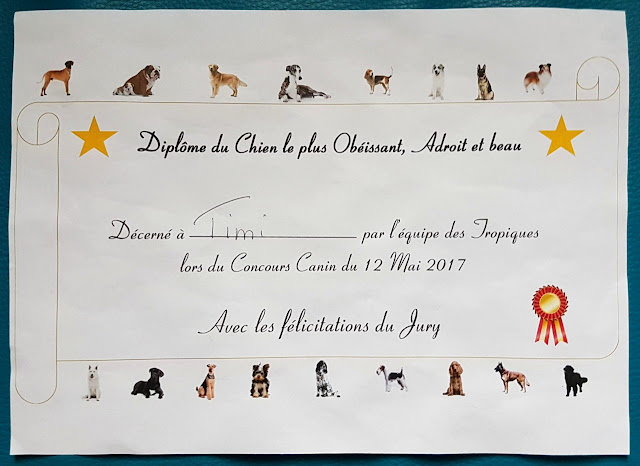 Diplôme du Chien le plus Obéissant, Adroit et beau
Décerné à Timi par l'équipe des Tropiques
lors du Concours Canin du 12 Mai 2017
Avec les félicitations du Jury